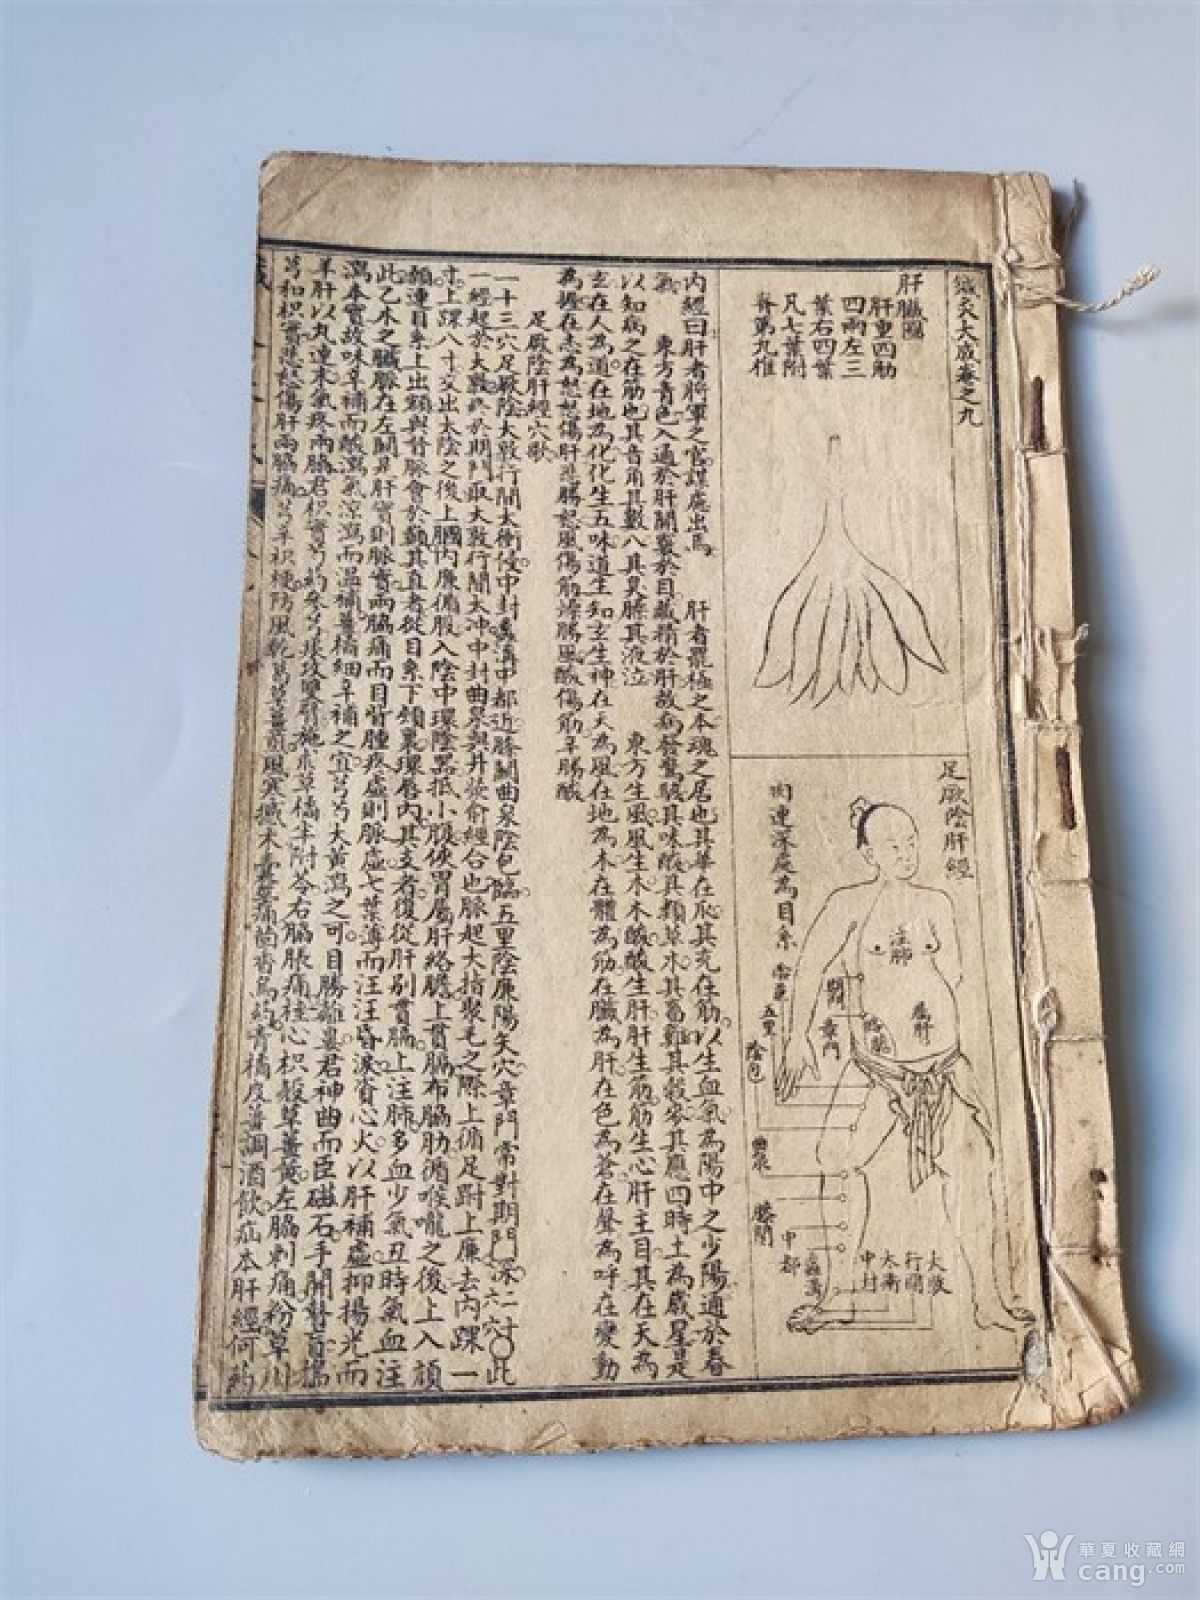 鍼灸大成卷之九
肝臟圖
肝重四觔
四兩左三
葉右四葉
凡七葉附
脊第九椎
足厥陰肝經
肉連深處為目系
注肺
屬肝
絡膽
期門
章門
五里
陰包
曲泉
膝關
中都
蠡溝
中封
太衝
行間
大敦
內經曰肝者將軍之官謀慮出焉 肝者罷極之本魂之居也其華在爪其充在筋以生血氣為陽中之少陽通於春
氣 東方青色入通於肝開竅於目藏精於肝故病發驚駭其味酸其類草木其畜雞其穀麥其應四時上為歲星是
以知病之在筋也其音角其數八其臭臊其液泣 東方生風風生木木酸酸生肝肝生筋筋生心肝主目其在天為
玄在人為道在地為化化生五味道生知玄生神在天為風在地為木在體為筋在臟為肝在色為蒼在聲為呼在變動
為握在志為怒怒傷肝悲勝怒風傷筋燥勝風酸傷筋辛勝酸
足厥陰肝經穴歌
一十三穴足厥陰大敦行間太衝侵中封蠡溝中都近膝關曲泉陰包臨五里陰廉陽矢穴章門常對期門深二十六穴此
一經起於大敦終於期門取大敦行間太冲中封曲泉與井滎俞經合也脈起大指聚毛之際上循足跗上廉去內踝一
寸上踝八寸交出太陰之後上膕內廉循股入陰中環陰器抵小腹俠胃屬肝絡膽上貫膈布脇肋循喉嚨之後上入頏
顙連目系上出額與督脈會於巔其直者從目系下頰裏環唇內其支者復從肝別貫膈上注肺多血少氣丑時氣血注
此乙木之臟脈在左關是肝實則脈實兩脇痛而目背腫疼虛則脈虛七葉薄而汪汪昏淚資心火以肝補虛抑揚光而
瀉本實故味辛補而酸瀉氣涼瀉而溫補薑橘細辛補之宜芎芍大黃瀉之可目勝離婁君神曲而臣磁石手開瞽盲搗
羊肝以丸連末氣疼兩脇君枳實芍藥參芎痰攻雙臂施朮草橘半附苓右脇脹痛桂心枳殼草薑黃左脇刺痛粉草川
芎和枳實悲怒傷肝兩脇痛芎辛枳梗防風乾葛草薑煎風寒撼木囊莖痛茴香烏藥青橘皮薑調酒飲疝本肝經何藥
華夏收藏網
cang.com